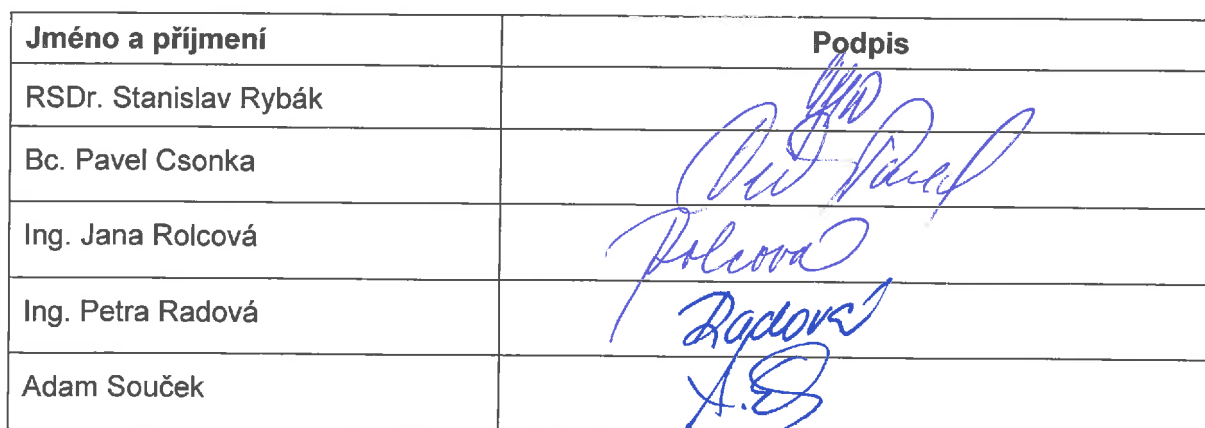 Jméno a příjmení Podpis
RSDr. Stanislav Rybák
Bc. Pavel Csonka Pavel
Ing. Jana Rolcová Rolcová
Ing. Petra Radová Radová
Adam Souček A.